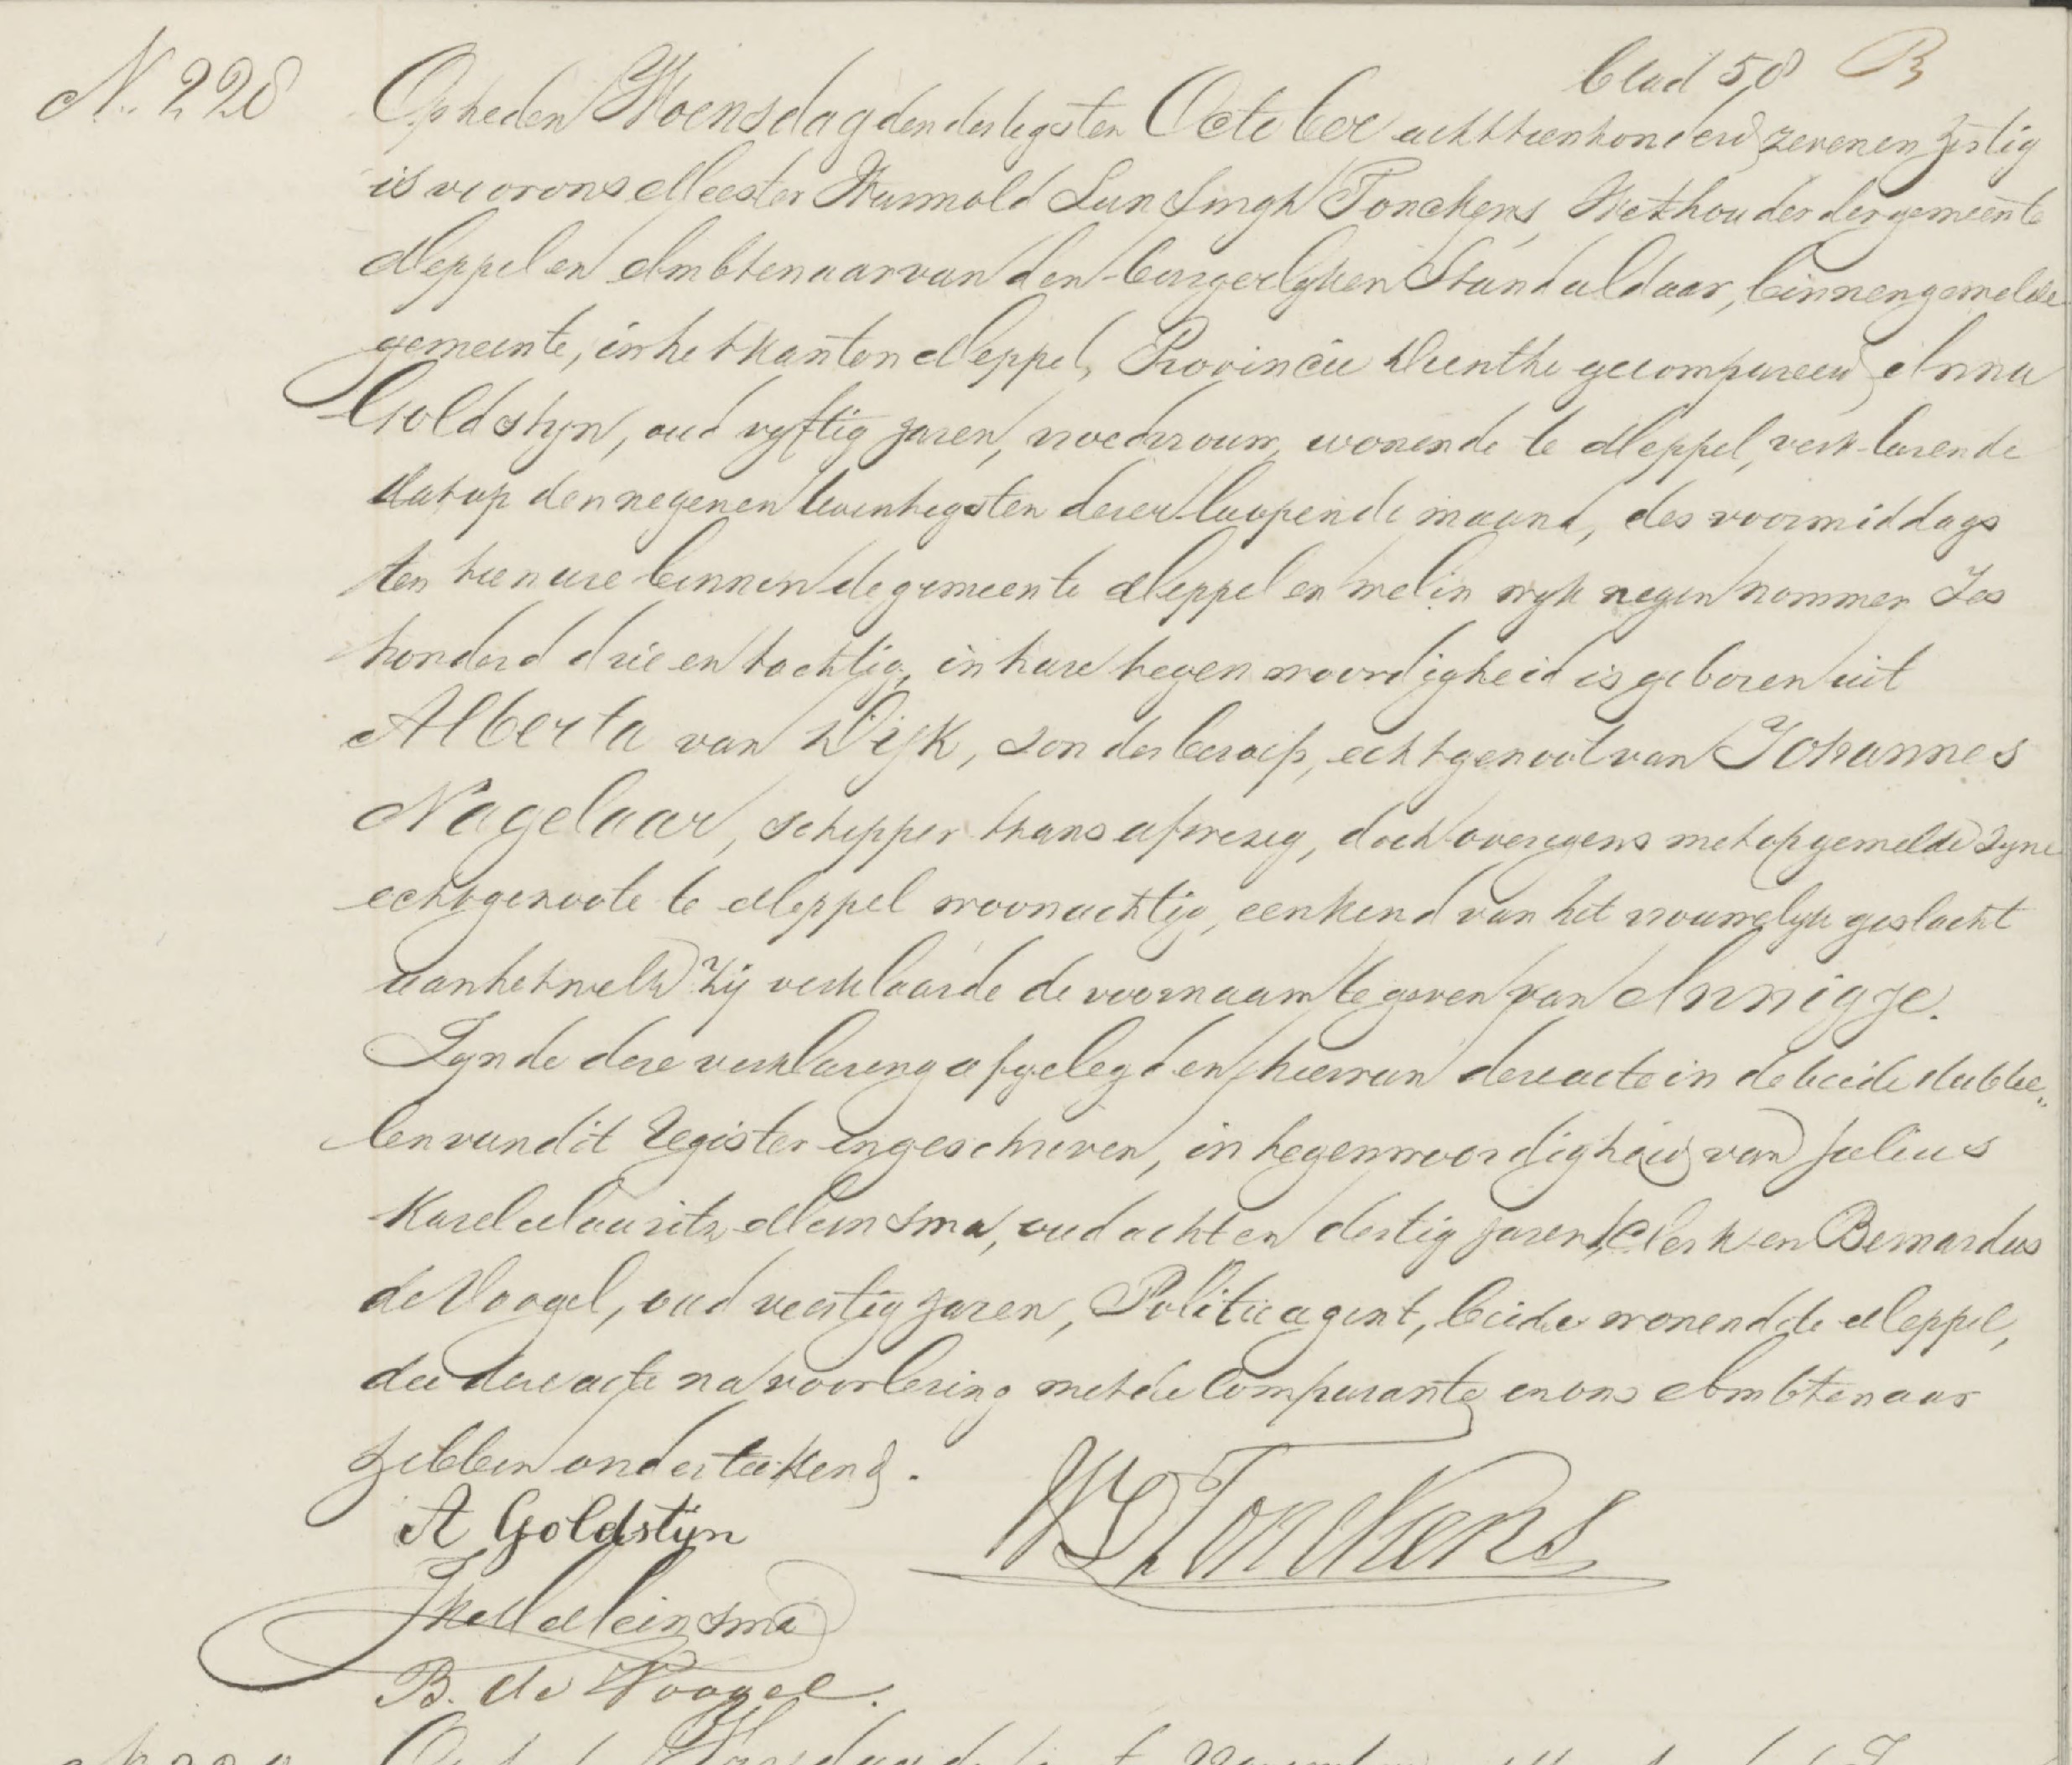 blad 58 B
N. 228
Op heden Woensdag den dertigsten October achttienhonderd zeven en zestig
is voor ons Meester Warmold Lunsingh Tonckens, Wethouder der gemeente
Meppel en Ambtenaar van den burgerlyken Stand aldaar, binnen gemelde
gemeente, in het kanton Meppel, Provincie Drenthe gecompareerd Anna
Goldstyn, oud vyftig jaren, vroedvrouw, wonende te Meppel, verklarende
dat op den negenentwintigsten dezer loopende maand, des voormiddags
ten tien ure binnen de gemeente Meppel en wel in wyk negen nommer Zes
honderd drie en tachtig, in hare tegenwoordigheid is geboren uit
Alberta van Dijk, zonder beroep, echtgenoot van Johannes
Nagelaar, schipper thans afwezig, doch overigens met opgemelde zyne
echtgenoote te Meppel woonachtig, een kind van het vrouwelyk geslacht
aan hetwelk zij verklaarde de voornaam te geven van Annigje.
Zynde deze verklaring afgelegd en hiervan deze acte in de beide dubbe„
len van dit register ingeschreven, in tegenwoordigheid van Julius
Karel Mauritz Meinsma, oud acht en dertig jaren, Clerk en Bernardus
de Voogel, oud veertig jaren, Politieagent, beide wonend te Meppel,
die deze acte na voorlezing met de Comparante en ons Ambtenaar
hebben onderteekend.
A Goldstijn
WLTonckens
JKMMeinsma
B. de Voogel.